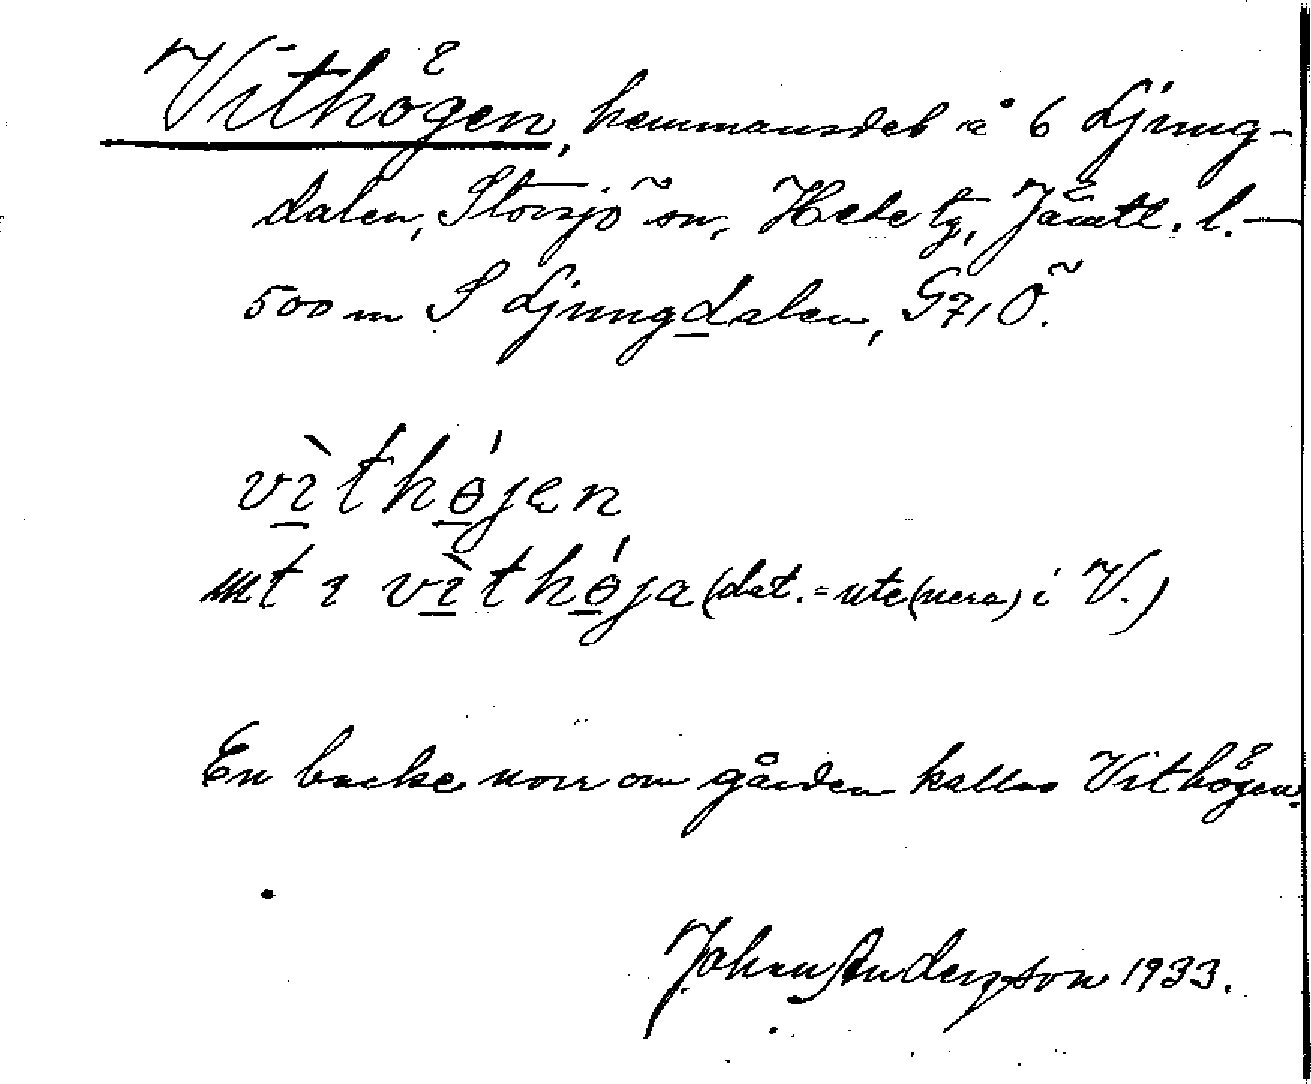 Vithögen, hemmansdel å 6 Ljung-
dalen, Storsjö sn, Hede tg, Jämtl. l. —
500 m S Ljungdalen, G7, Ö.
vìthǿjen
mt ı vìthǿja (dat. = ute (nere) i V.)
En backe norr om gården kallas Vithögen.
Johan Anderzson 1933.